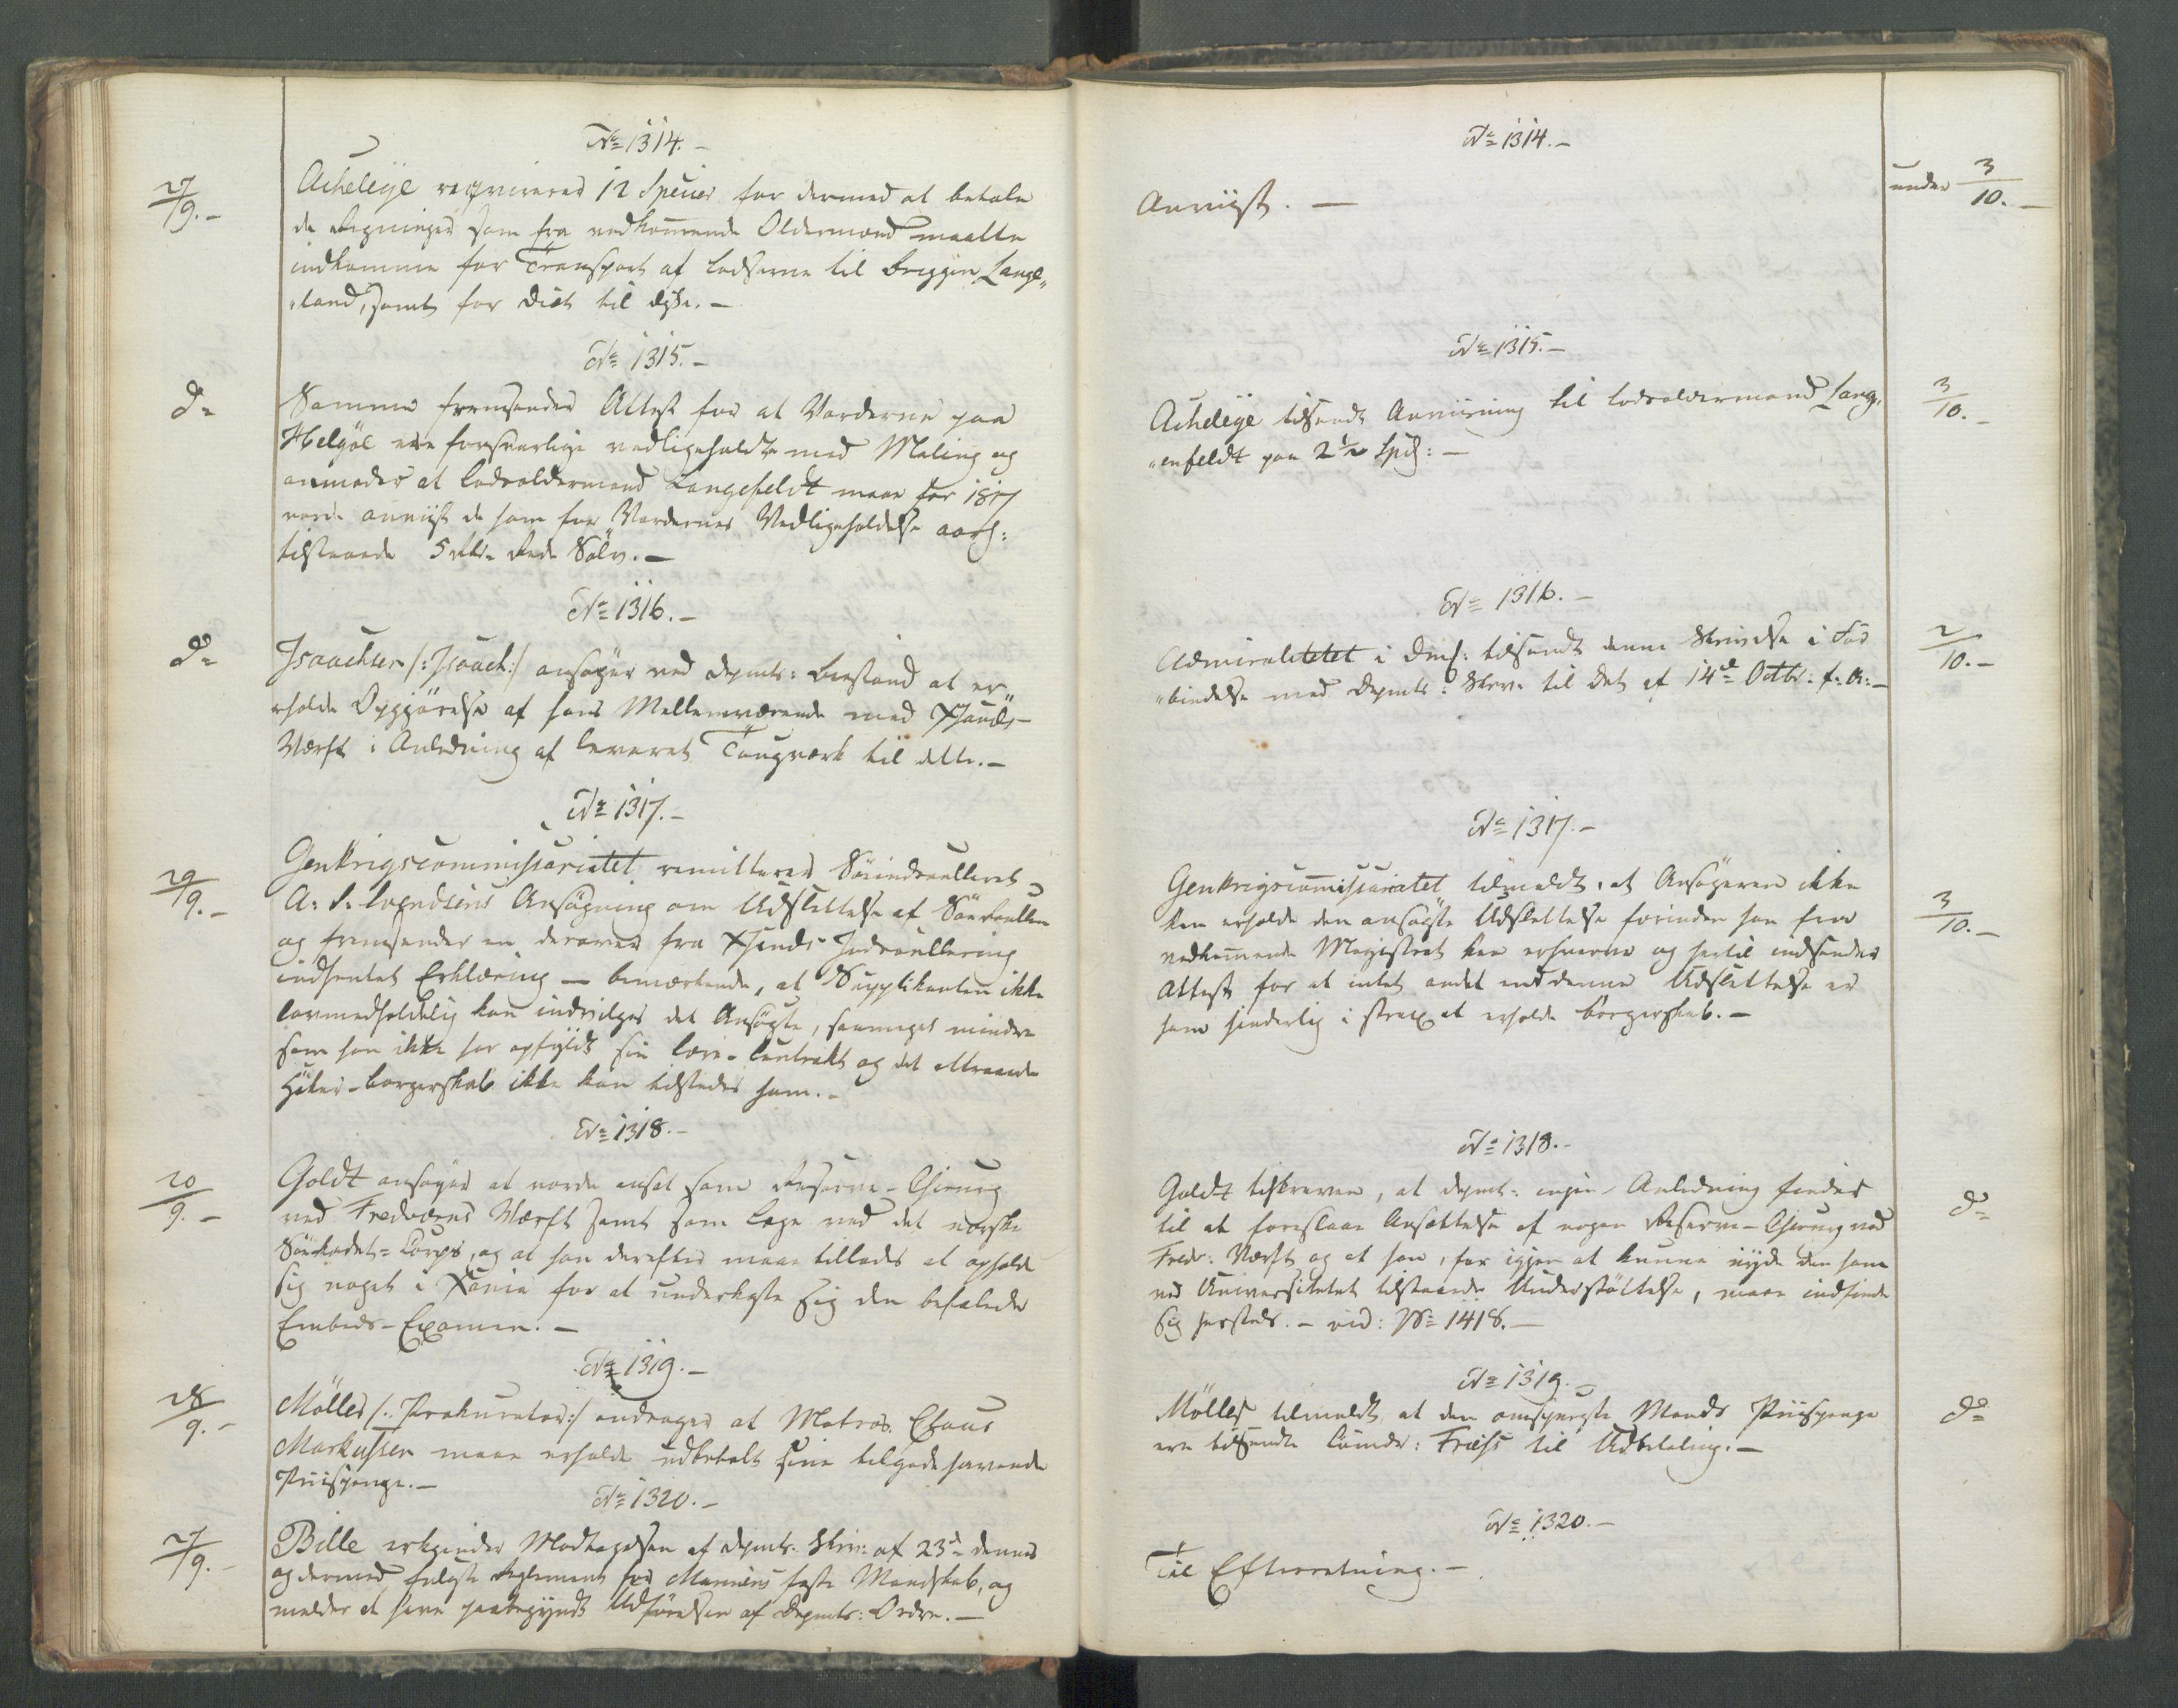 No 1314.-
27/9.-
Acheleye reqvirerer 12 Specier for dermed at betale
de Regninger som fra vedkommende Oldermænd maatte
indkomme for Transport af Lodserne til Briggen Lange„
„land, samt for Diæt til disse.-
No 1315.-
do
Samme fremsender Attest for at Varderne paa
Helgöe ere forsvarlige vedligeholdte med Maling og
anmoder at Lodsoldermand Langefeldt maa for 1817
vorde anviist de ham for Vardernes Vedligeholdelse aarl:
tilstaaede 5 Rbd. rede Sölv.-
No 1316.-
do
Isaachsen /:Isaach:/ ansöger ved Depmts: Bistand at er„
„holde Opgjörelse af hans Mellemværende med Xsands-
Værft i Anledning af leveret Tougværk til dette.-
No 1317.-
29/9.-
Genkrigscommissariatet remitterer Söeindroulleret
A. S. Svendsens Ansögning om Udslettelse af Söe Roullen
og fremsender en derover fra Xsands Indroullering
indhentet Erklæring - bemærkende, at Supplikanten ikke
lovmedholdelig kan indvilges det Ansögte, saameget mindre
som han ikke har opfyldt sin Lære-Contrakt og det attraaede
Höker-Borgerskab ikke kan tilstedes ham.-
No 1318.-
20/9.-
Goldt ansöger at vorde ansat som Reserve-Chirurg
ved Fredværns Værft samt som Læge ved det norske
Söekadet-Corps, og at han derefter maa tillades at opholde
sig noget i Xania for at underkaste sig den befalede
Embeds-Examen.-
No 1319.-
28/9.-
Möller /:Prokurator:/ andrager at Matros Claus
Markussen maa erholde udbetalt sine tilgodehavende
Priispenge.-
No 1320.-
27/9.-
Bille erkjender Modtagelsen af Depmts. Skriv: af 23d dennes
og dermed fulgte Reglement for Marinens faste Mandskab, og
melder at have paabegyndt Udförelsen af Depmts: Ordre.-
No 1314.-
Anviist.-
under 3/10.-
No 1315.-
Acheleye tilsendt Anviisning til Lodsoldermand Lang„
„enfeldt paa 2½ Spd:-
3/10.-
No 1316.-
Admiralitetet i Dmk: tilsendt denne Skrivelse i For
„bindelse med Depmts: Skrv. til det af 14de Octbr: f. A:-
2/10.-
No 1317.-
Genkrigscommissariatet tilmeldt, at Ansögeren ikke
kan erholde den ansögte Udslettelse forinden han fra
vedkommende Magistrat kan erhverve og hertil indsender
Attest for at intet andet end denne Udslettelse er
ham hinderlig i strax at erholde Borgerskab.-
3/10.-
No 1318.-
Goldt tilskreven, at Depmt: ingen Anledning finder
til at foreslaae Ansættelse af nogen Reserve-Chirurg ved
Fredr: Værft og at han, for igjen at kunne nyde den ham
ved Universitetet tilstaaede Understöttelse, maa indfinde
sig hersteds.- vid: No 1418.-
do
No 1319.-
Möller tilmeldt, at den omspurgte Mands Priispenge
ere tilsendte Comdr: Friess til Udbetaling.-
do
No 1320.-
Til Efterretning.-